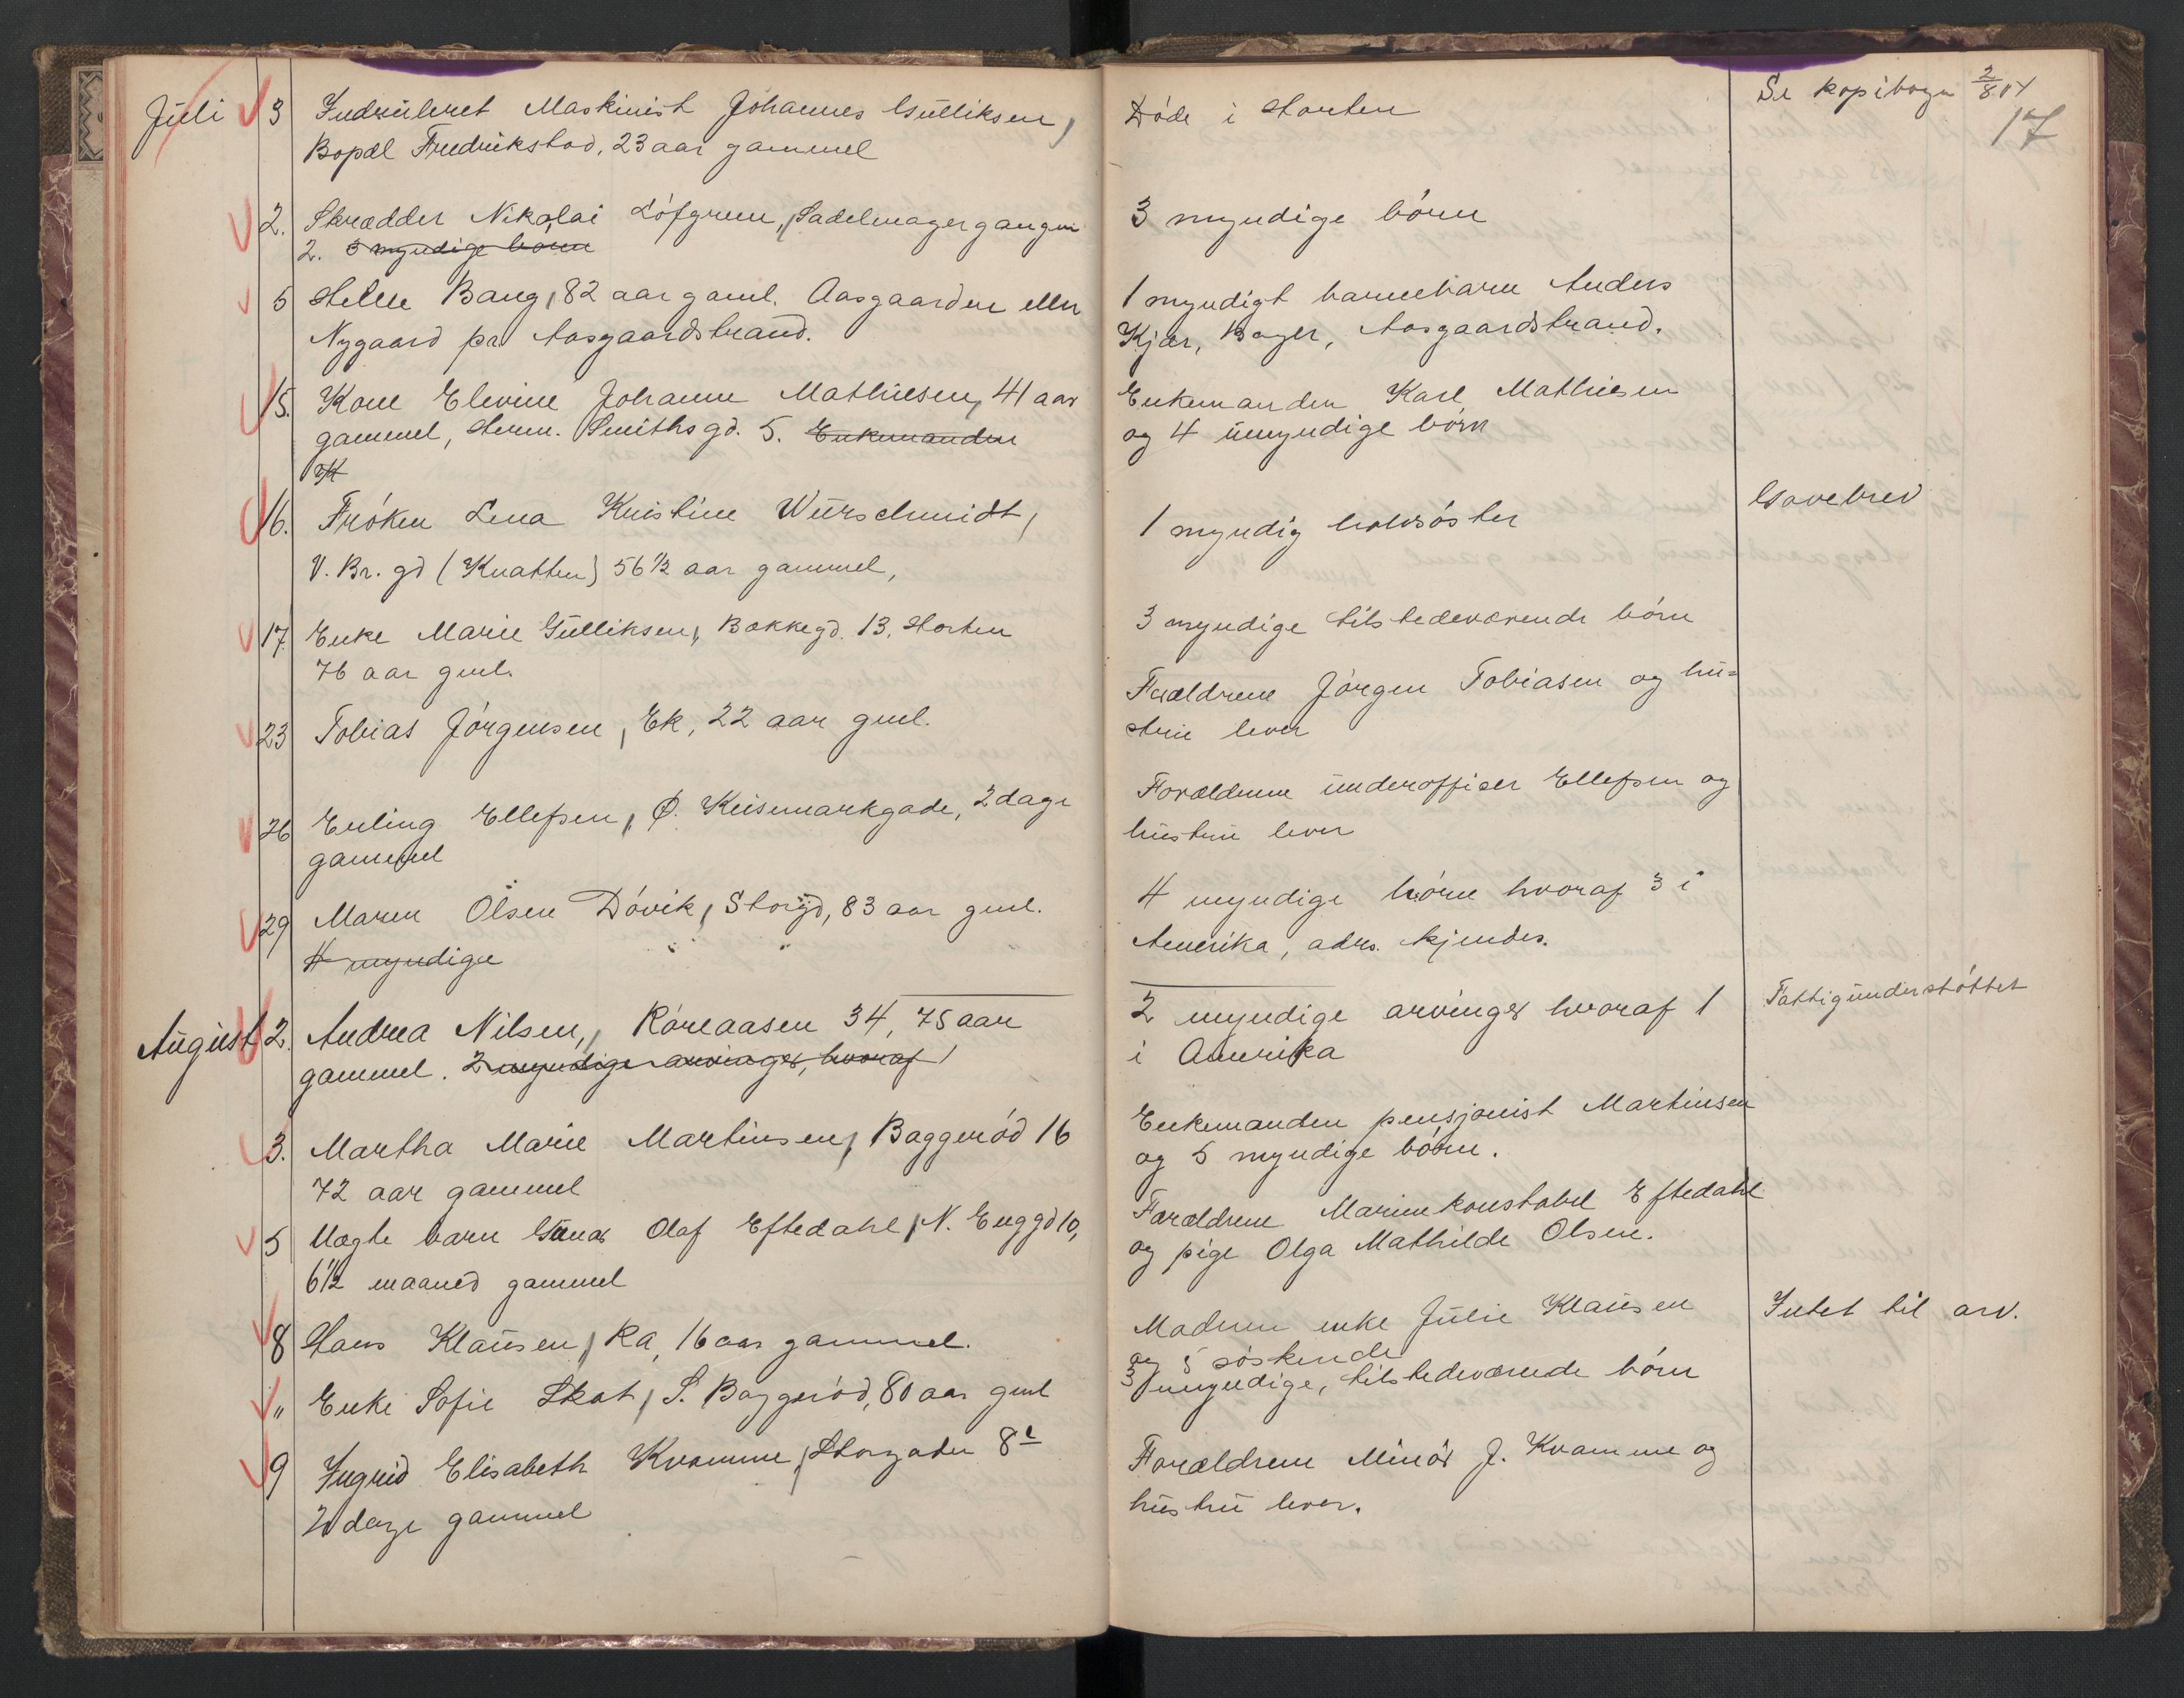 Juli 3 Indrulleret Maskinist Johannes Gulliksen,
Bopæl Fredrikstad, 23 aar gammel
Døde i Horten
Se kopibogen 2/8 04
17
2. Skrædder Nikolai Løfgren, Sadelmagergangen
2. 3 myndige børn
3 myndige børn
5 Helene Bang, 82 aar gaml. Aasgaarden eller
Nygaard pr Aasgaardstrand.
1 myndigt barnebarn Anders
Kjær, Bager, Aasgaardstrand.
15. Kone Elevine Johanne Mathiesen, 41 aar
gammel, Herm. Smiths gd. 5. Enkemanden
Enkemanden Karl Mathiesen
og 4 umyndige børn
16. Frøken Lena Kristine Würschmidt,
V. Br. gd (Knatten) 56 1/2 aar gammel,
1 myndig halvsøster
Gavebrev
17. Enke Marie Gulliksen, Bakkegd. 13, Horten
76 aar gml.
3 myndige tilstedeværende børn
23 Tobias Jørgensen, Ek, 22 aar gml.
Forældrene Jørgen Tobiasen og hu-
stru lever
26 Erling Ellefsen, Ø. Keisemarkgade, 2 dage
gammel
Forældrene underofficer Ellefsen og
hustru lever
29 Maren Olsen Døvik, Storgd, 83 aar gml.
4 myndige
4 myndige børn hvoraf 3 i
Amerika, adrs. kjendes.
August 2. Andrea Nilsen, Røreaasen 34, 75 aar
gammel. 2 myndige arvinger, hvoraf 1
2 myndige arvinger hvoraf 1
i Amerika
Fattigunderstøttet
3. Martha Marie Martinsen, Baggerød 16
72 aar gammel
Enkemanden pensjonist Martinsen
og 5 myndige børn.
5 Uægte barn Gunar Olaf Eftedahl, N. Enggd 10,
6 1/2 maaned gammel
Forældrene Marinekonstabel Eftedahl
og pige Olga Mathilde Olsen.
8 Hans Klausen, Ra, 16 aar gammel.
Moderen enke Julie Klausen
og 5 søskende
Intet til arv.
" Enke Sofie Skat, S. Baggerød, 80 aar gml
3 myndige, tilstedeværende børn
9 Ingrid Elisabeth Kvamme, Storgaten 8
2 dage gammel
Forældrene Minør J. Kvamme og
hustru lever.